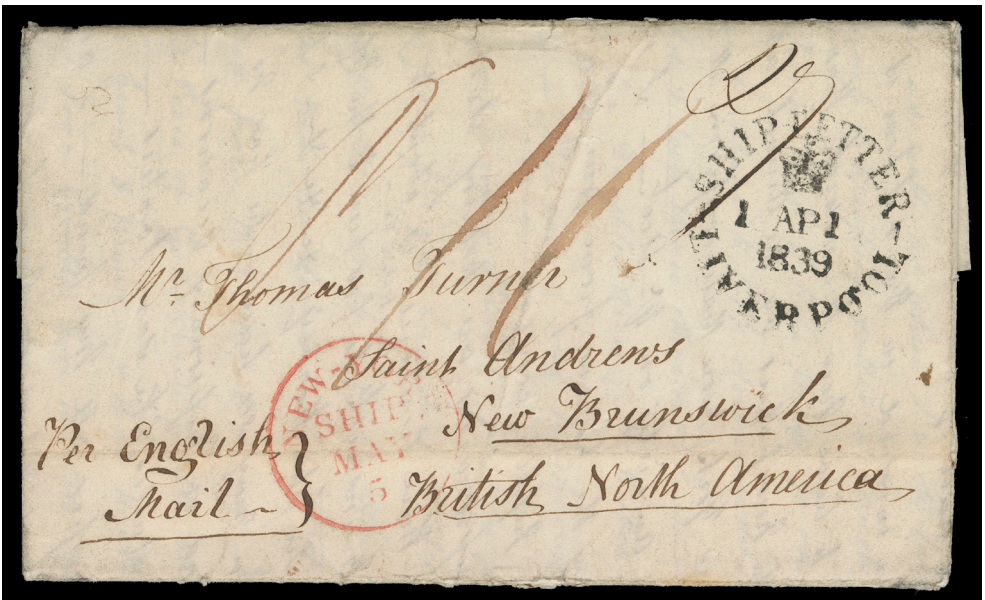 SHIP-LETTER
1 AP 1
1839
LIVERPOOL
Mr Thomas Turner
Saint Andrews
New Brunswick
British North America
Per English
Mail
SHIP
MAY
5